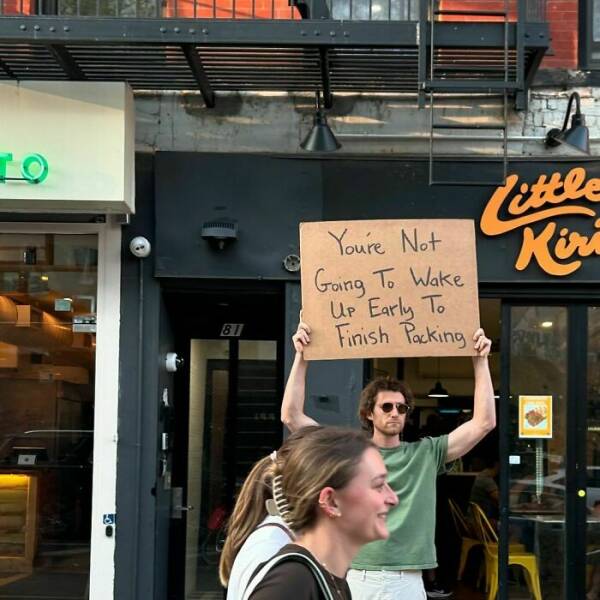 TO
Little
Kiri
81
You're Not
Going To Wake
Up Early To
Finish Packing